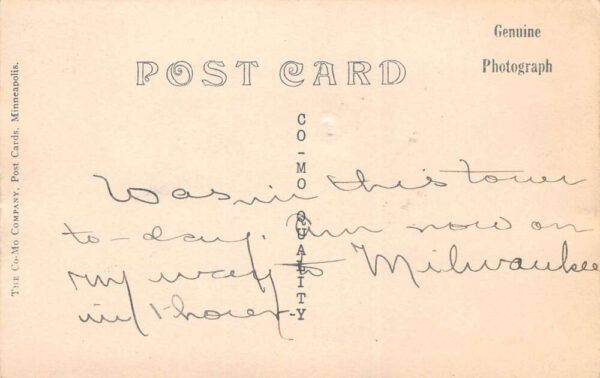 Genuine
Photograph
POST CARD
THE CO-MO COMPANY, Post Cards, Minneapolis.
CO-MO QUALITY
Was in this tower
to-day. Am now on
my way to Milwaukee